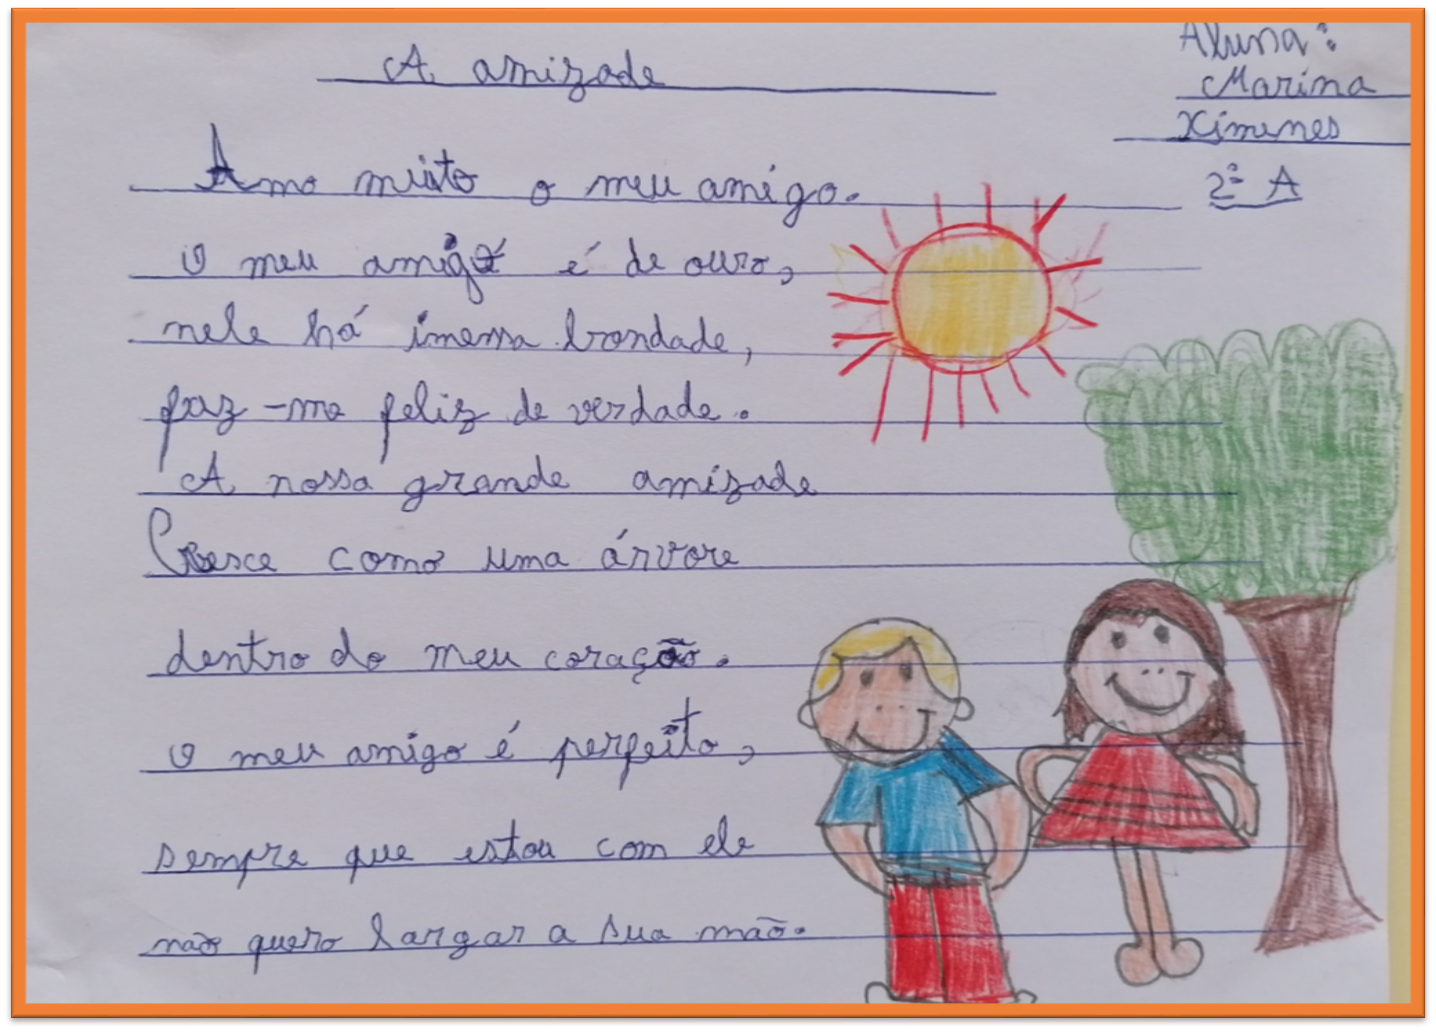 A amizade
Aluna:
Marina
Ximenes
2º A
Amo muito o meu amigo.
O meu amigo é de ouro,
nele há imensa bondade,
faz-me feliz de verdade.
A nossa grande amizade
Cresce como uma árvore
dentro do meu coração.
O meu amigo é perfeito,
sempre que estou com ele
não quero largar a sua mão.